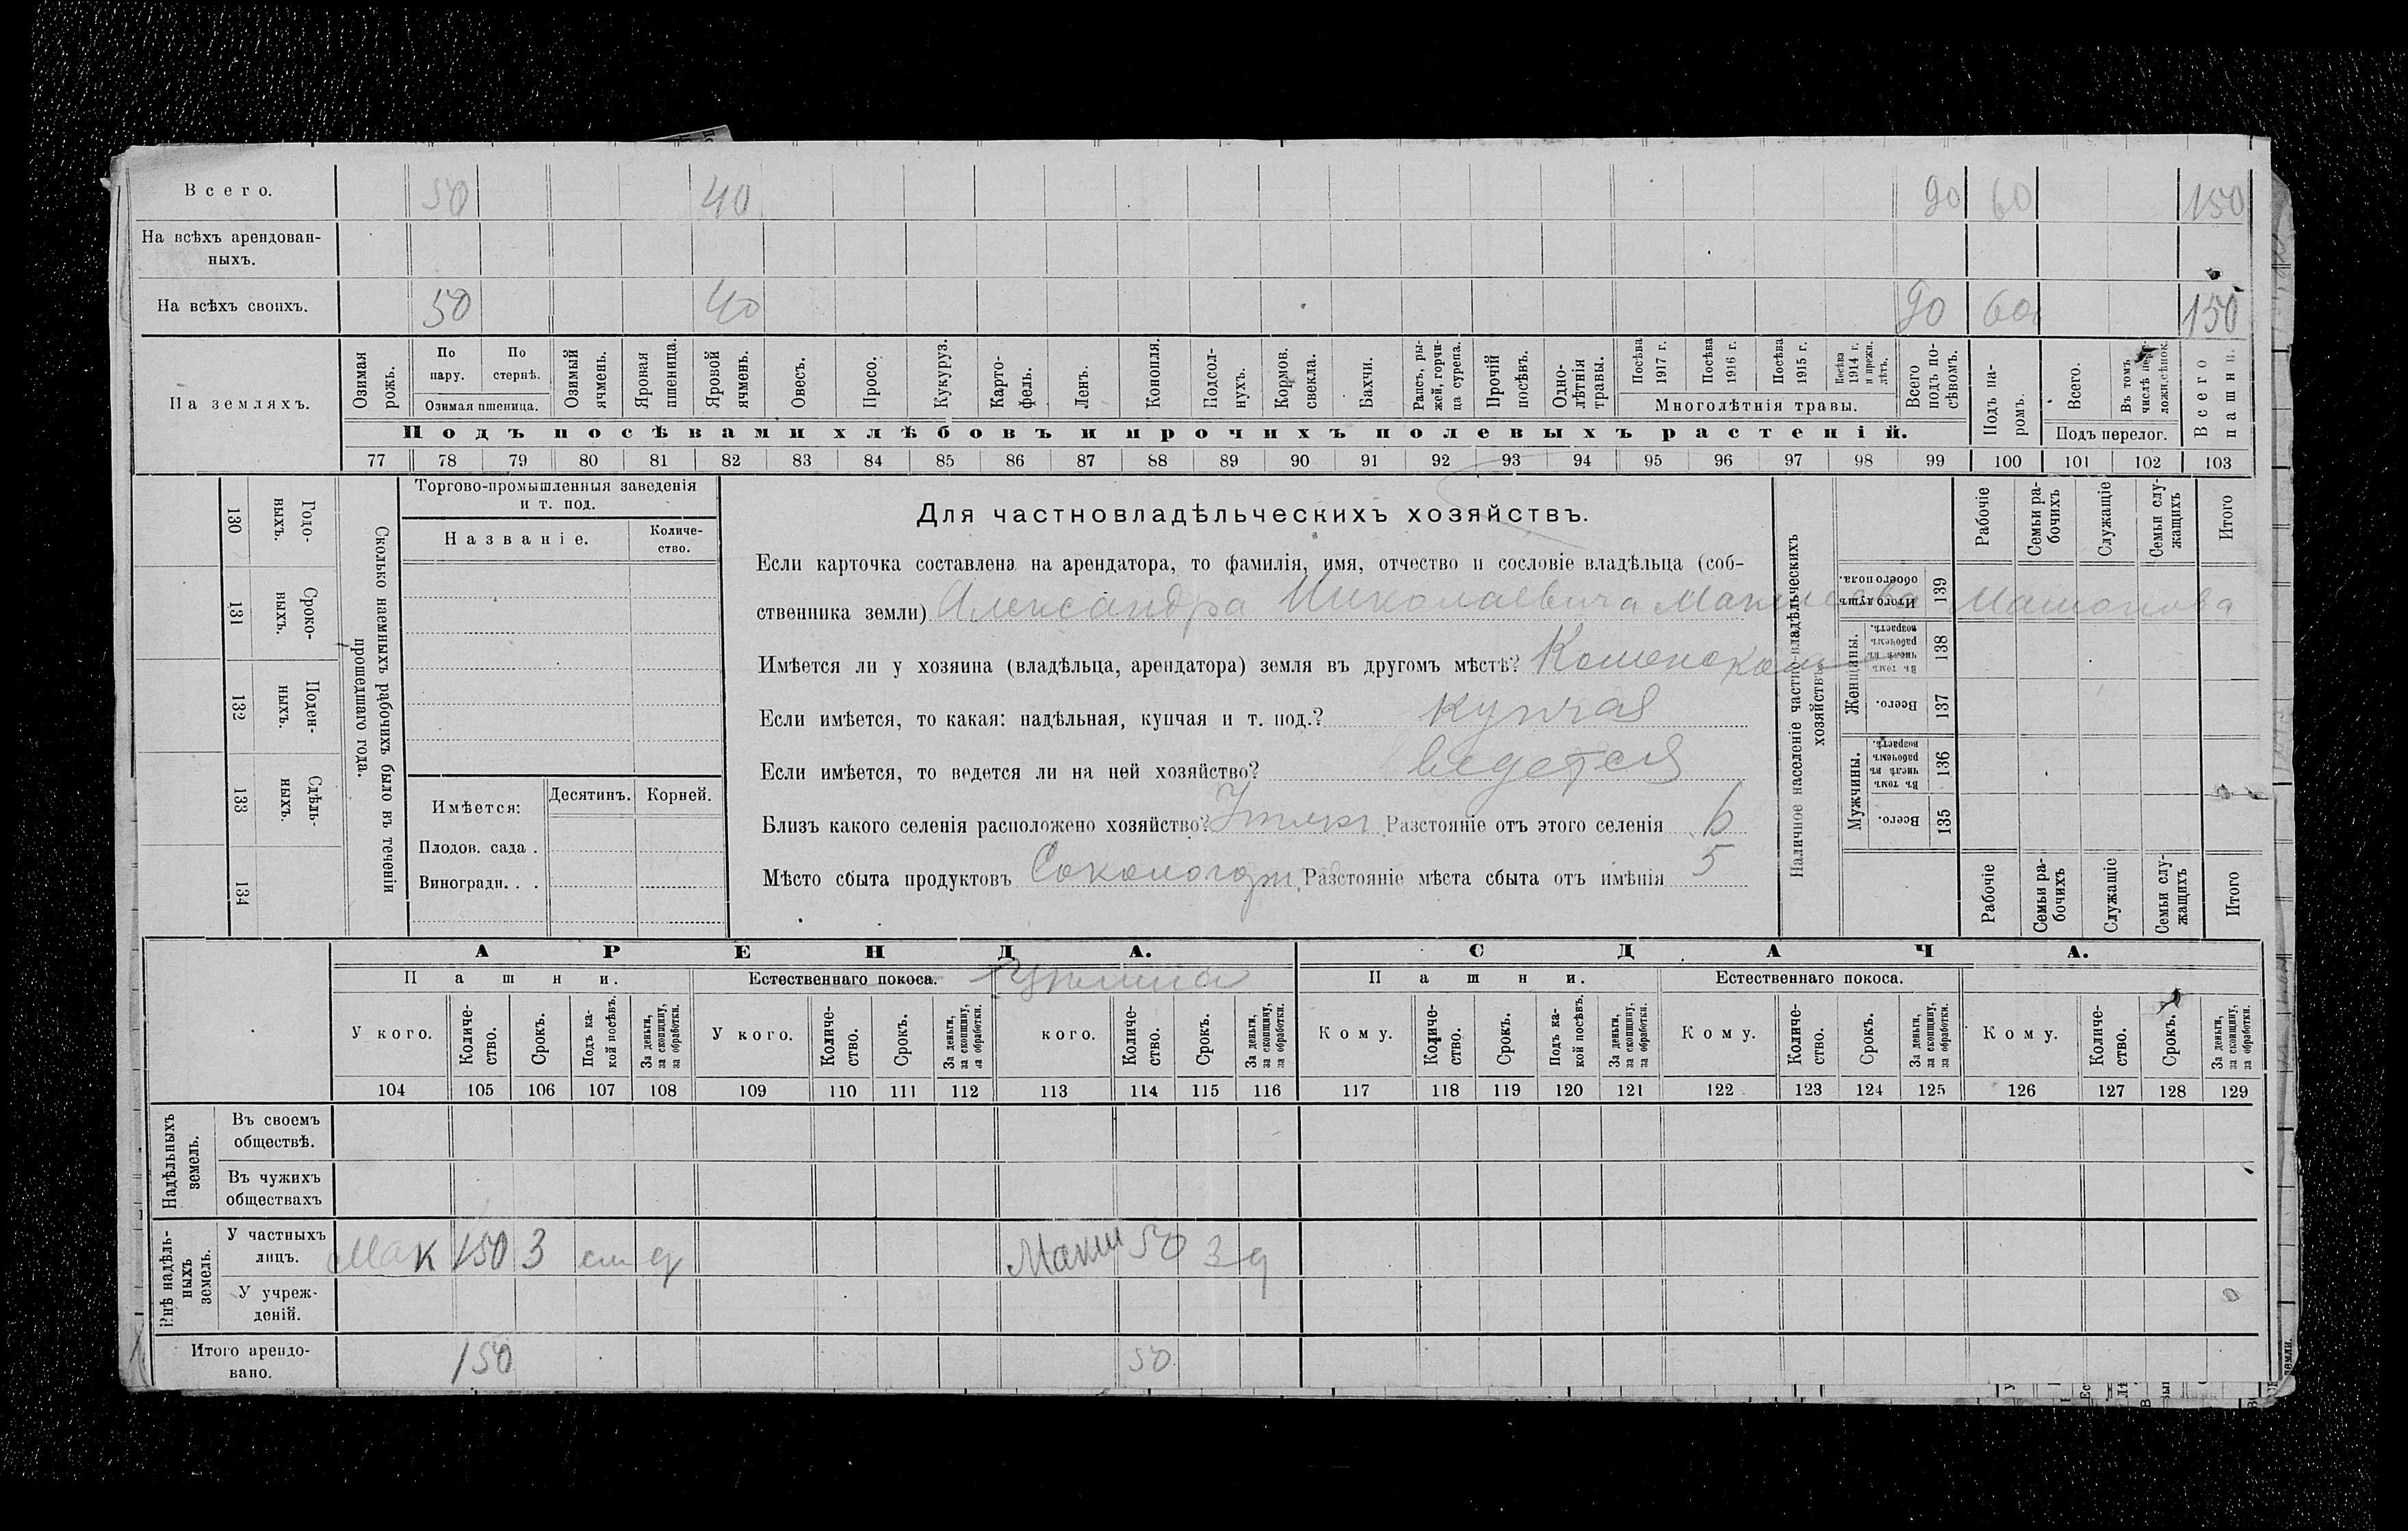 Всего. 50 40 90 60 150
На всѣхъ арендован-
ныхъ.
На всѣхъ своихъ. 50 40 90 60 150
На земляхъ.
Озимая рожь.
По пару.
По стернѣ.
Озимая пшеница.
Озимый ячмень.
Яровая пшеница.
Яровой ячмень.
Овесъ.
Просо.
Кукуруз.
Карто-
фель.
Ленъ.
Конопля.
Подсол-
нухъ.
Кормов. свекла.
Бахчи.
Рапсъ, ры-
жей, горчи-
ца сурепа.
Прочій посѣвъ.
Одно-
лѣтнія травы.
Посѣва 1917 г.
Посѣва 1916 г.
Посѣва 1915 г.
Посѣва 1914 г. и прежн. лѣтъ.
Многолѣтнія травы.
Всего подъ по-
сѣвомъ.
Подъ па-
ромъ.
Всего.
Въ томъ числѣ
Подъ перелог.
Всего пашни.
Подъ посѣвами хлѣбовъ и прочихъ полевыхъ растеній.
77 78 79 80 81 82 83 84 85 86 87 88 89 90 91 92 93 94 95 96 97 98 99 100 101 102 103
130 Годо-
выхъ.
131 Сроко-
выхъ.
132 Поден-
ныхъ.
133 Сдѣль-
ныхъ.
134
Сколько наемныхъ рабочихъ было въ теченіи
прошедшаго года.
Торгово-промышленныя заведенія
и т. под.
Названіе.
Количе-
ство.
Имѣется: Десятинъ. Корней.
Плодов. сада .
Виноградн. . .
Для частновладѣльческихъ хозяйствъ.
Если карточка составлена на арендатора, то фамилія, имя, отчество и сословіе владѣльца (соб-
ственника земли) Александра Николаевича
Имѣется ли у хозяина (владѣльца, арендатора) земля въ другомъ мѣстѣ?
Если имѣется, то какая: надѣльная, купчая и т. под.? купчая
Если имѣется, то ведется ли на ней хозяйство? ведется
Близъ какого селенія расположено хозяйство? Разстояніе отъ этого селенія 6
Мѣсто сбыта продуктовъ Разстояніе мѣста сбыта отъ имѣнія 5
Наличное населеніе частно-владѣльческихъ
хозяйствъ
Рабочіе
Семьи ра-
бочихъ
Служащіе
Семьи слу-
жащихъ
Итого
Итого душъ обоего пола. 139
Женщины.
Въ томъ числѣ въ рабочемъ возрастѣ. 138
Всего. 137
Мужчины.
Въ томъ числѣ въ рабочемъ возрастѣ. 136
Всего. 135
Рабочіе
Семьи ра-
бочихъ
Служащіе
Семьи слу-
жащихъ
Итого
АРЕНДА. СДАЧА.
Пашни. Естественнаго покоса. Пашни. Естественнаго покоса.
У кого. Количе-
ство. Срокъ. Подъ ка-
кой посѣвъ. За деньги, за скопщину, за обработки.
У кого. Количе-
ство. Срокъ. За деньги, за скопщину, за обработки.
кого. Количе-
ство. Срокъ. За деньги, за скопщину, за обработки.
Кому. Количе-
ство. Срокъ. Подъ ка-
кой посѣвъ. За деньги, за скопщину, за обработки.
Кому. Количе-
ство. Срокъ. За деньги, за скопщину, за обработки.
Кому. Количе-
ство. Срокъ. За деньги, за скопщину, за обработки.
104 105 106 107 108 109 110 111 112 113 114 115 116 117 118 119 120 121 122 123 124 125 126 127 128 129
Надѣльныхъ
земель.
Въ своемъ
обществѣ.
Въ чужихъ
обществахъ
Внѣ надѣль-
ныхъ
земель.
У частныхъ
лицъ. Мак 150 3 д 50 3 д
У учреж-
деній.
Итого арендо-
вано. 150 50